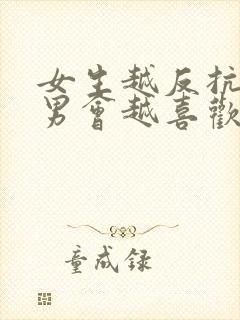 女生越反抗
男會越喜歡
童成録